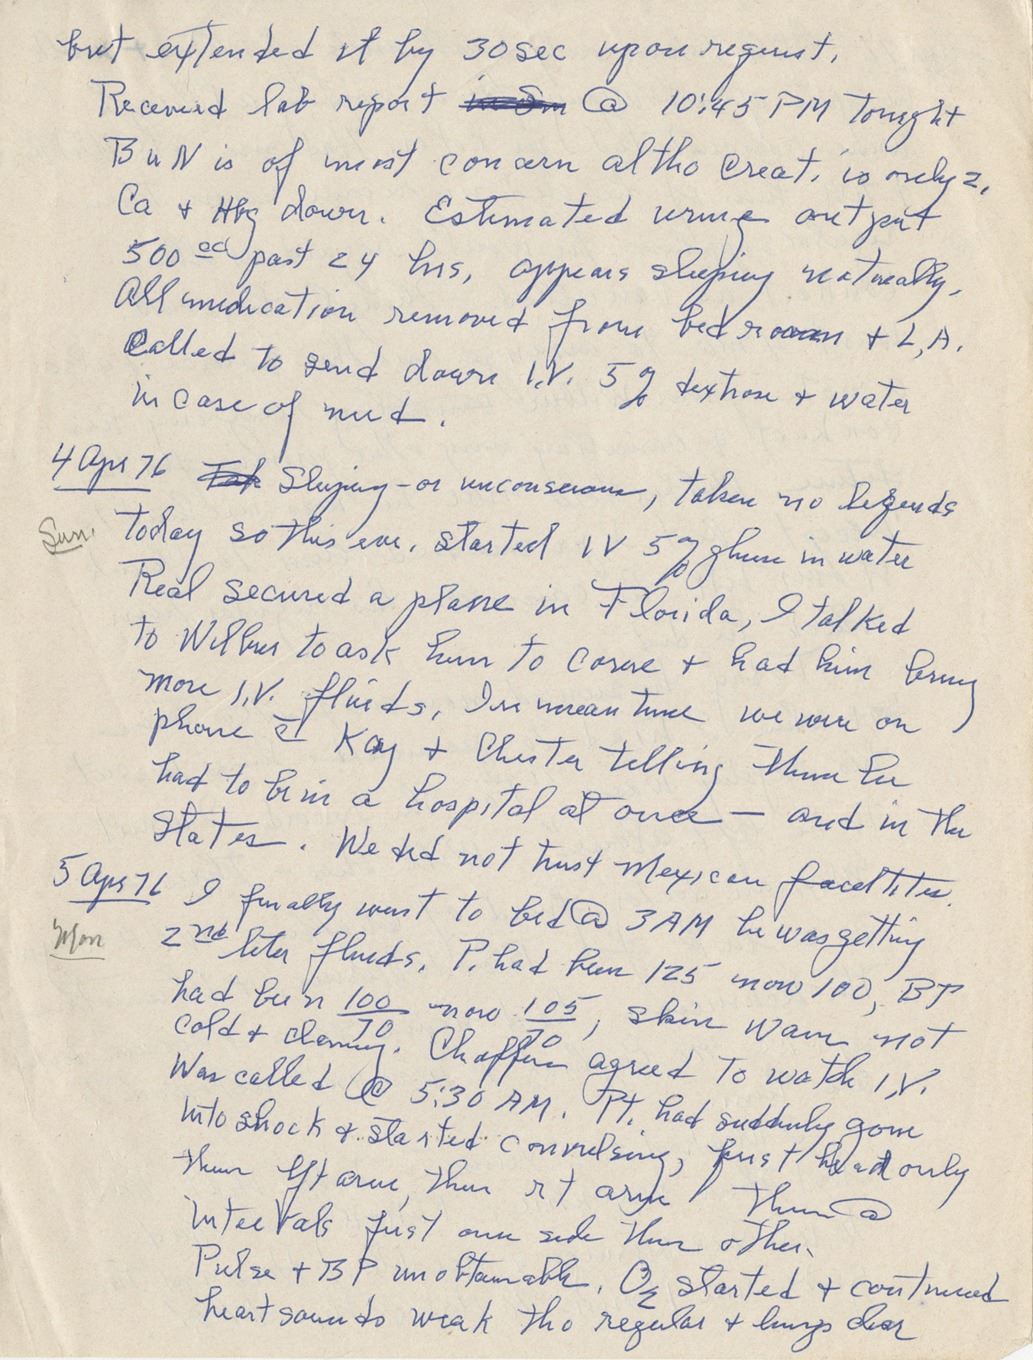 but extended it by 30sec upon request.
Received lab report in 8m @ 10:45 PM tonight
BuN is of most concern altho Creat. is only 2.
Ca + Hbg down. Estimated urine output
500 cc past 24 hrs, appears sleeping naturally.
All medication removed from bedroom + L.A.
Called to send down I.V. 5% dextrose + water
in case of need.
4 Apr 76 Sleping - or unconscious, taken no liquids
Sun. today so this eve. started IV 5% gluse in water
Real secured a plane in Florida, I talked
to Wilbur to ask him to come + had him bring
more I.V. fluids, In mean time we were on
phone c̄ Kay + Chester telling them he
had to be in a hospital at once — and in the
States. We did not trust Mexican facilities.
5 Apr 76 I finally went to bed @ 3 AM he was getting
Mon 2nd liter fluids. P. had been 125 now 100, BP
had been 100/70 now 105/70, skin warm not
cold + clammy. Chaffin agreed to watch I.V.
Was called @ 5:30 AM. Pt. had suddenly gone
into shock + started convulsing, first head only
then lft arm, then rt arm then @
intervals first one side then other.
Pulse + BP unobtainable. O2 started + continued
heart sounds weak tho regular + lungs clear